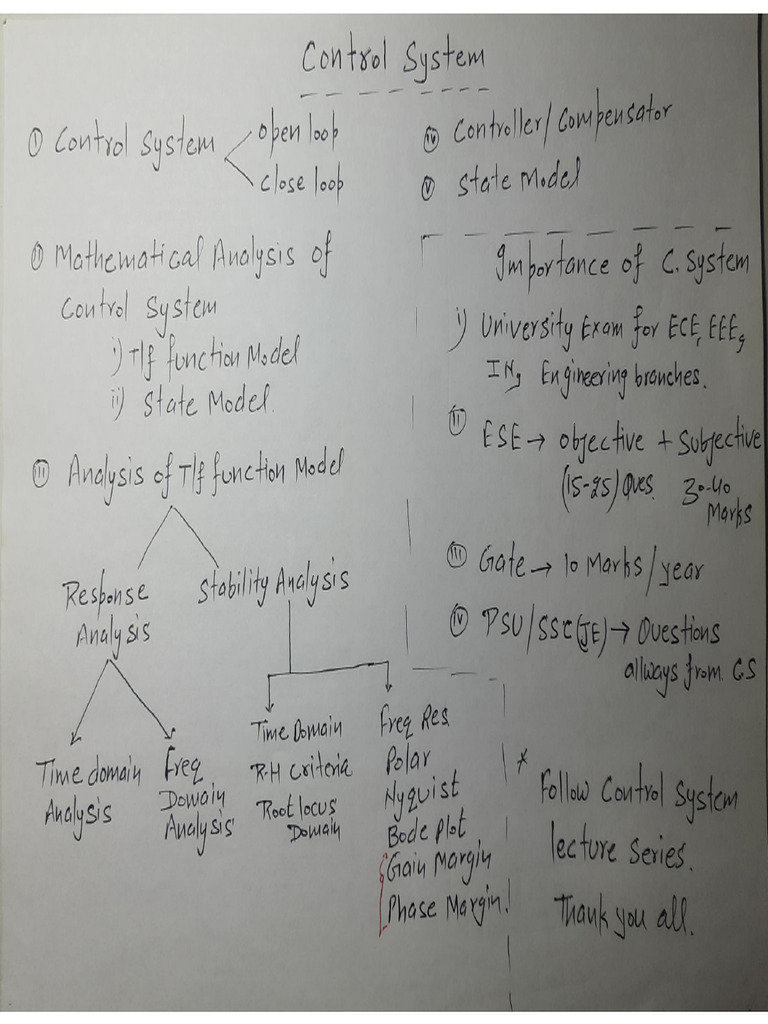 Control System
① Control System
open loop
close loop
② Mathematical Analysis of
Control System
i) T/f function Model
ii) State Model.
③ Analysis of T/f function Model
Response
Analysis
Stability Analysis
Time domain
Analysis
Freq
Domain
Analysis
Time Domain
R-H Criteria
Root locus
Domain
Freq Res
Polar
Nyquist
Bode Plot
Gain Margin
Phase Margin.
ⅳ Controller/Compensator
ⅴ State Model
Importance of C. System
i) University Exam for ECE, EEE,
IN, Engineering branches.
ⅱ ESE → Objective + Subjective
(15-25) Ques. 30-40
Marks
ⅲ Gate → 10 Marks/year
ⅳ PSU/SSC(JE) → Questions
allways from CS
* Follow Control System
lecture series.
Thank you all.